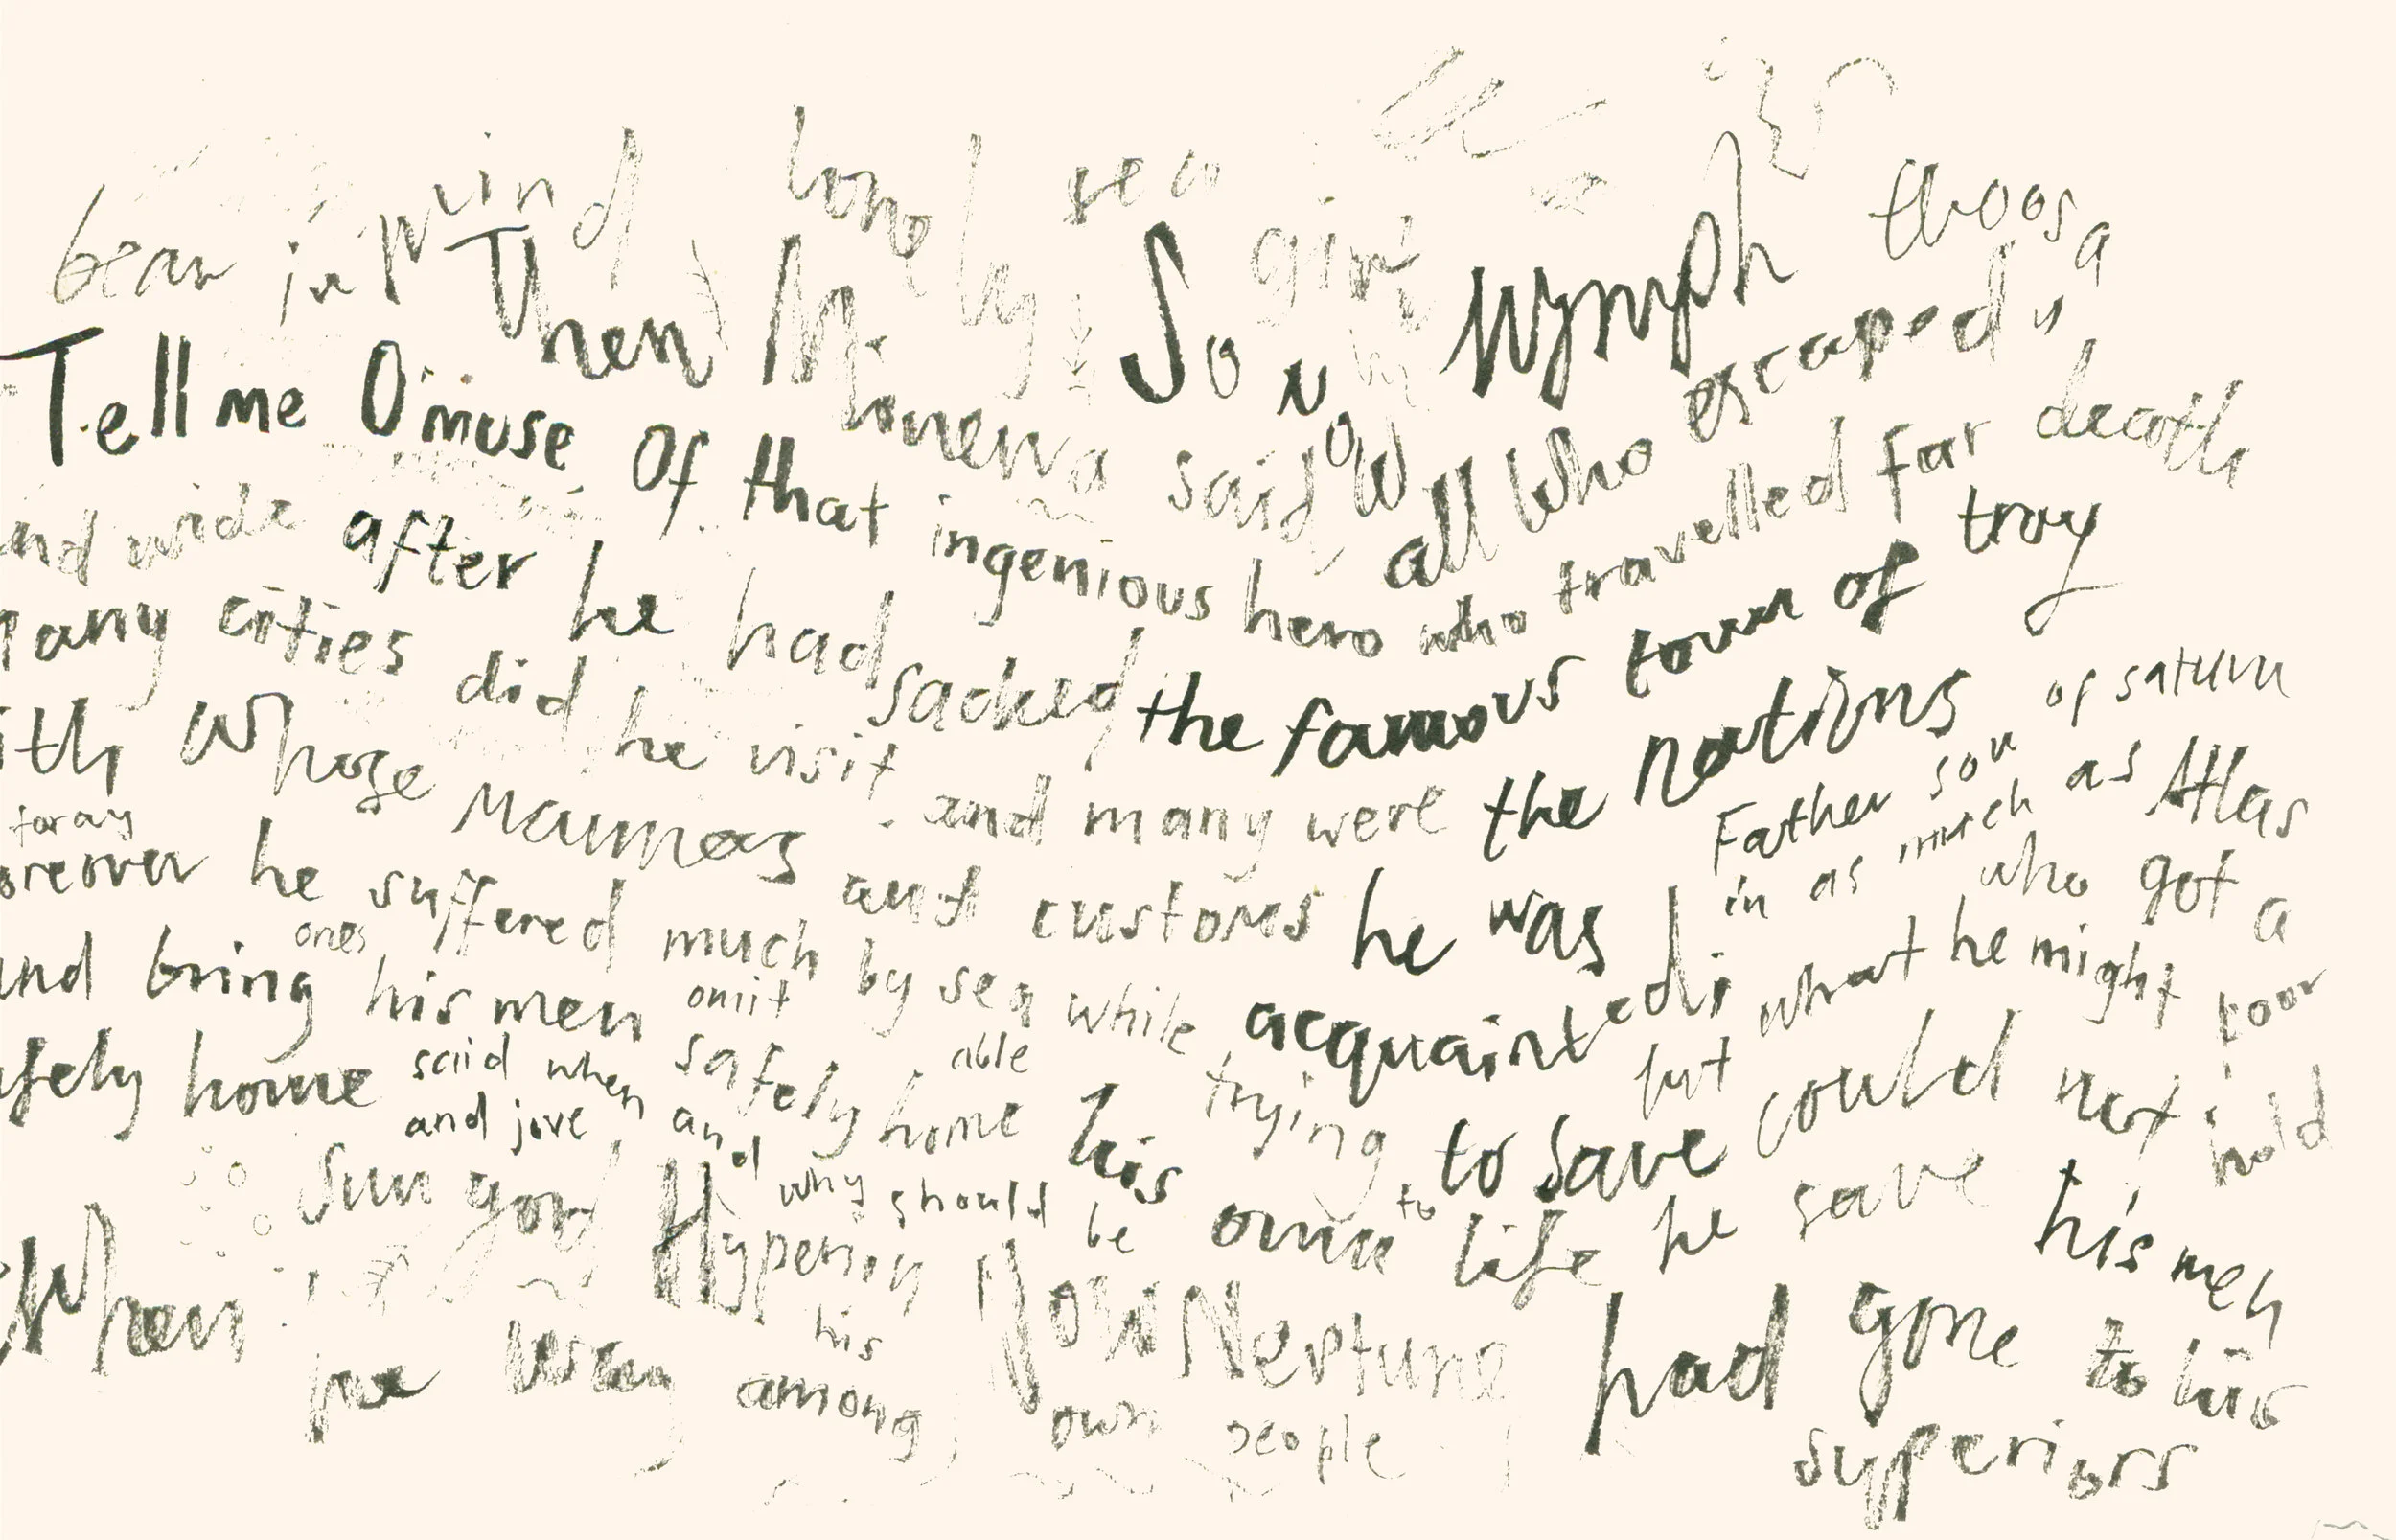 bear in mind lonely sea girt
Then Minerva said
So now nymph thoosa
now all who escaped death
Tell me O'muse Of that ingenious hero who travelled far
and wide after he had sacked the famous town of troy
many cities did he visit and many were the nations
with whose manners and customs he was acquainted
Father son of saturn
in as much as Atlas
who got a poor
hold
moreover he suffered much by sea while trying to save
his own life
and bring his men safely home
but what he might
could not save his men
ones omit able to
safely home said when and why should be
and jove
sun god Hyperion Now Neptune had gone to his
superiors
When
he was among his own people